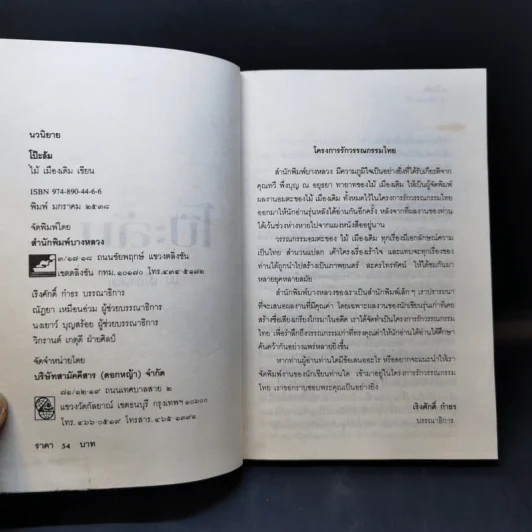 นวนิยาย
โป๊ะล้ม
ไม้ เมืองเดิม เขียน
ISBN 974-890-44-6-6
พิมพ์ มกราคม ๒๕๓๘
จัดพิมพ์โดย
สำนักพิมพ์บางหลวง
๓/๑๗-๑๘ ถนนชัยพฤกษ์ แขวงตลิ่งชัน
เขตตลิ่งชัน กทม. ๑๐๑๗๐ โทร.๔๓๔-๕๑๘๒
เริงศักดิ์ กำธร บรรณาธิการ
ณัฎยา เหมือนอ่วม ผู้ช่วยบรรณาธิการ
นงเยาว์ บุญสร้อย ผู้ช่วยบรรณาธิการ
วีกานต์ เกตุดี ฝ่ายศิลป์
จัดจำหน่ายโดย
บริษัทสามัคคีสาร (ดอกหญ้า) จำกัด
๗๑/๑๒-๑๗ ถนนเทศบาลสาย ๒
แขวงวัดกัลยาณ์ เขตธนบุรี กรุงเทพฯ ๑๐๖๐๐
โทร. ๔๖๖-๐๕๑๙ โทรสาร. ๔๖๕-๑๓๙๑
ราคา 54 บาท
โครงการรักวรรณกรรมไทย
สำนักพิมพ์บางหลวง มีความภูมิใจเป็นอย่างยิ่งที่ได้รับเกียรติจาก
คุณทวี พึ่งบุญ ณ อยุธยา ทายาทของไม้ เมืองเดิม ให้เป็นผู้จัดพิมพ์
ผลงานอมตะของ ไม้ เมืองเดิม ทั้งหมดไว้ในโครงการรักวรรณกรรมไทย
ออกมาให้นักอ่านรุ่นหลังได้อ่านกันอีกครั้ง หลังจากที่ผลงานของท่าน
ได้เว้นช่วงห่างหายไปจากแผงหนังสืออยู่นาน
วรรณกรรมอมตะของ ไม้ เมืองเดิม ทุกเรื่องมีเอกลักษณ์ความ
เป็นไทย สำนวนแปลก เค้าโครงเรื่องเร้าใจ และแทบจะทุกเรื่องของ
ท่านได้ถูกนำไปสร้างเป็นภาพยนตร์ ละครโทรทัศน์ ให้ได้ชมกันมา
หลายยุคหลายสมัย
สำนักพิมพ์บางหลวงของเราเป็นสำนักพิมพ์เล็ก ๆ เราปรารถนา
ที่จะเสนอผลงานที่มีคุณค่า โดยเฉพาะผลงานของนักเขียนรุ่นเก่าที่เคย
สร้างชื่อเสียงเกรียงไกรมาในอดีต เราได้จัดทำเป็นโครงการรักวรรณกรรม
ไทย เพื่อรำลึกถึงวรรณกรรมเก่าที่ทรงคุณค่าให้นักอ่านได้อ่านได้ศึกษา
ค้นคว้ากันอย่างแพร่หลายยิ่งขึ้น
หากท่านผู้อ่านท่านใดมีข้อเสนออะไร หรืออยากจะแนะนำให้เรา
จัดพิมพ์งานของนักเขียนท่านใด เข้ามาอยู่ในโครงการรักวรรณกรรม
ไทย เราขอกราบขอบพระคุณเป็นอย่างยิ่ง
เริงศักดิ์ กำธร
บรรณาธิการ